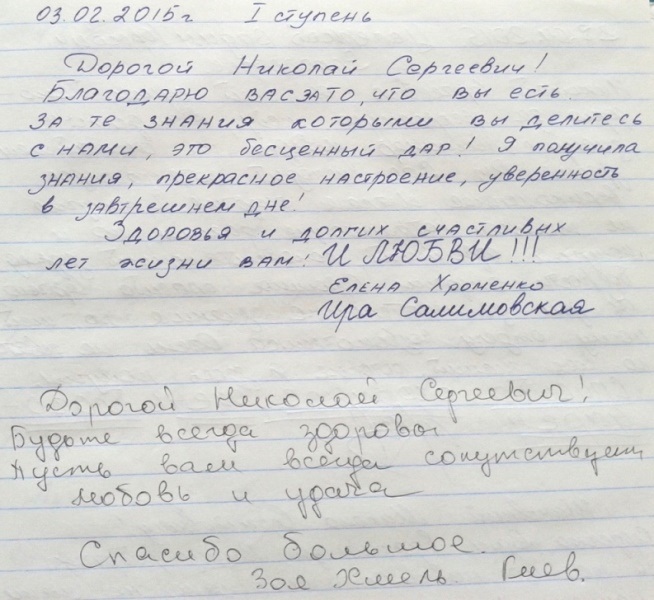 03.02.2015г I ступень
Дорогой Николай Сергеевич!
Благодарю вас за то, что вы есть.
За те знания которыми вы делитесь
с нами, это бесценный дар! Я получила
знания, прекрасное настроение, уверенность
в завтрешнем дне!
Здоровья и долгих счастливых
лет жизни вам! И ЛЮБВИ!!!
Елена Хроменко
Ира Салимовская
Дорогой Николай Сергеевич!
Будьте всегда здоровы
Пусть вам всегда сопутствует
любовь и удача
Спасибо большое.
Зоя Хмель. Киев.